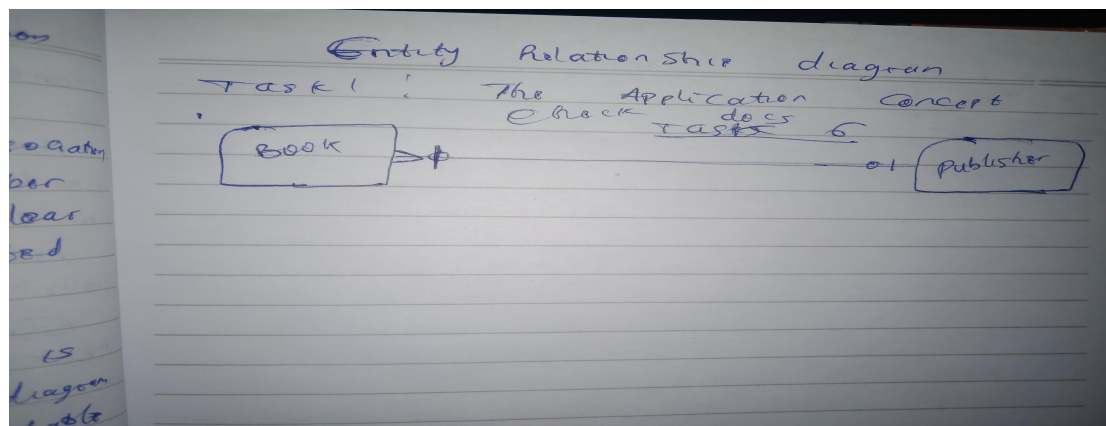 Entity Relationship diagram
Task 1 : The Application Concept
Check docs
Tasks 6
BOOK
01
publisher
ber
lear
is
diagram